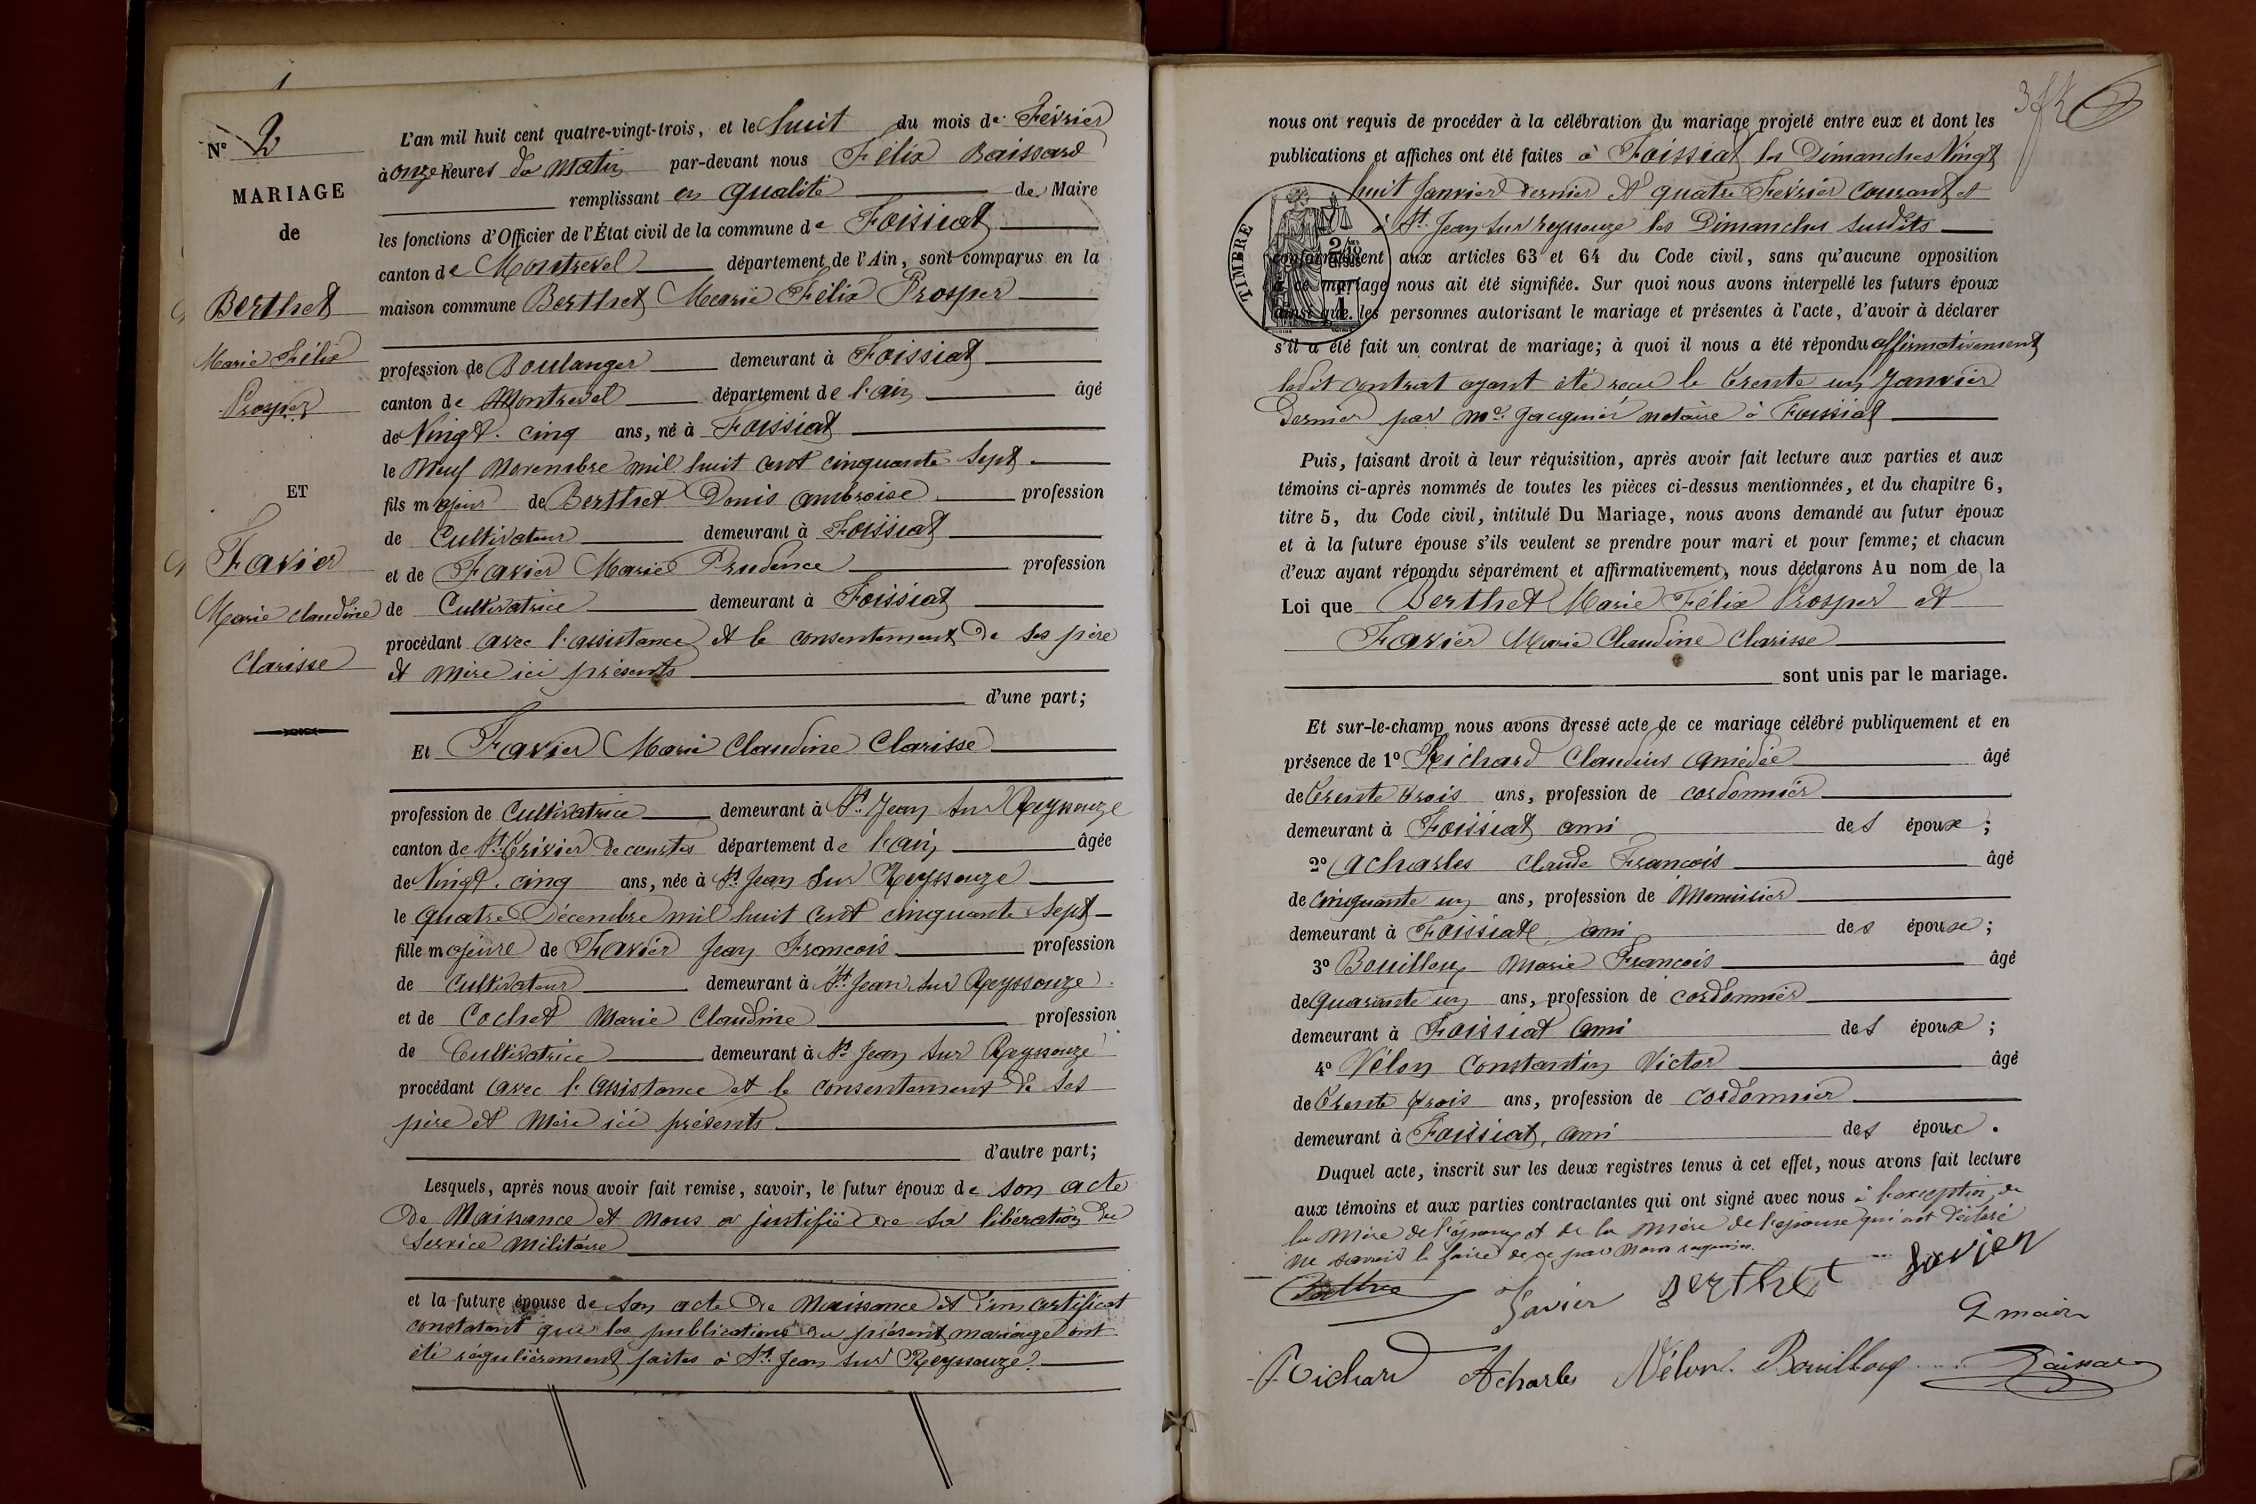 N° 2
MARIAGE
de
Berthet
Marie Félix
Prosper
ET
Favier
Marie Claudine
Clarisse
L'an mil huit cent quatre-vingt-trois, et le huit du mois de Février
à onze heures du matin par-devant nous Félix Baissard
remplissant en qualité de Maire
les fonctions d'Officier de l'État civil de la commune de Foissiat
canton de Montrevel département de l'Ain, sont comparus en la
maison commune Berthet Marie Félix Prosper
profession de Boulanger demeurant à Foissiat
canton de Montrevel département de l'ain âgé
de Vingt-cinq ans, né à Foissiat
le Neuf Novembre mil huit cent cinquante sept
fils majeur de Berthet Denis Ambroise profession
de Cultivateur demeurant à Foissiat
et de Favier Marie Prudence profession
de Cultivatrice demeurant à Foissiat
procédant avec l'assistance et le consentement de ses père
et mère ici présents
d'une part;
Et Favier Marie Claudine Clarisse
profession de Cultivatrice demeurant à St Jean sur Reyssouze
canton de St Trivier de courtes département de l'ain âgée
de Vingt-cinq ans, née à St Jean sur Reyssouze
le quatre Décembre mil huit cent cinquante sept
fille majeure de Favier Jean François profession
de Cultivateur demeurant à St Jean sur Reyssouze
et de Cochet Marie Claudine profession
de Cultivatrice demeurant à St Jean sur Reyssouze
procédant avec l'assistance et le consentement de ses
père et mère ici présents
d'autre part;
Lesquels, après nous avoir fait remise, savoir, le futur époux de son acte
de Naissance et nous a justifié de sa libération du
Service Militaire
et la future épouse de son acte de Naissance et d'un certificat
constatant que les publications du présent mariage ont
été régulièrement faites à St Jean sur Reyssouze.
nous ont requis de procéder à la célébration du mariage projeté entre eux et dont les
publications et affiches ont été faites à Foissiat les Dimanches Vingt
huit Janvier dernier et quatre Février courant et
à St Jean sur reyssouze les Dimanches susdits
TIMBRE
conformément aux articles 63 et 64 du Code civil, sans qu'aucune opposition
à ce mariage nous ait été signifiée. Sur quoi nous avons interpellé les futurs époux
ainsi que les personnes autorisant le mariage et présentes à l'acte, d'avoir à déclarer
s'il a été fait un contrat de mariage; à quoi il nous a été répondu affirmativement
ledit contrat ayant été reçu le trente un Janvier
dernier par Me Jacquier notaire à Foissiat
Puis, faisant droit à leur réquisition, après avoir fait lecture aux parties et aux
témoins ci-après nommés de toutes les pièces ci-dessus mentionnées, et du chapitre 6,
titre 5, du Code civil, intitulé Du Mariage, nous avons demandé au futur époux
et à la future épouse s'ils veulent se prendre pour mari et pour femme; et chacun
d'eux ayant répondu séparément et affirmativement, nous déclarons Au nom de la
Loi que Berthet Marie Félix Prosper et
Favier Marie Claudine Clarisse
sont unis par le mariage.
Et sur-le-champ nous avons dressé acte de ce mariage célébré publiquement et en
présence de 1° Richard Claudius Amédée âgé
de trente trois ans, profession de cordonnier
demeurant à Foissiat ami des époux;
2° Acharles Claude François âgé
de cinquante un ans, profession de Menuisier
demeurant à Foissiat ami des époux;
3° Bouilloux Marie François âgé
de quarante un ans, profession de cordonnier
demeurant à Foissiat ami des époux;
4° Vélon Constantin Victor âgé
de trente trois ans, profession de cordonnier
demeurant à Foissiat, ami des époux.
Duquel acte, inscrit sur les deux registres tenus à cet effet, nous avons fait lecture
aux témoins et aux parties contractantes qui ont signé avec nous à l'exception de
la Mère de l'époux et de la Mère de l'épouse qui ont déclaré
ne savoir le faire de ce par nous requises.
Favier Berthet Favier
Richard Acharles Vélon Bouilloux